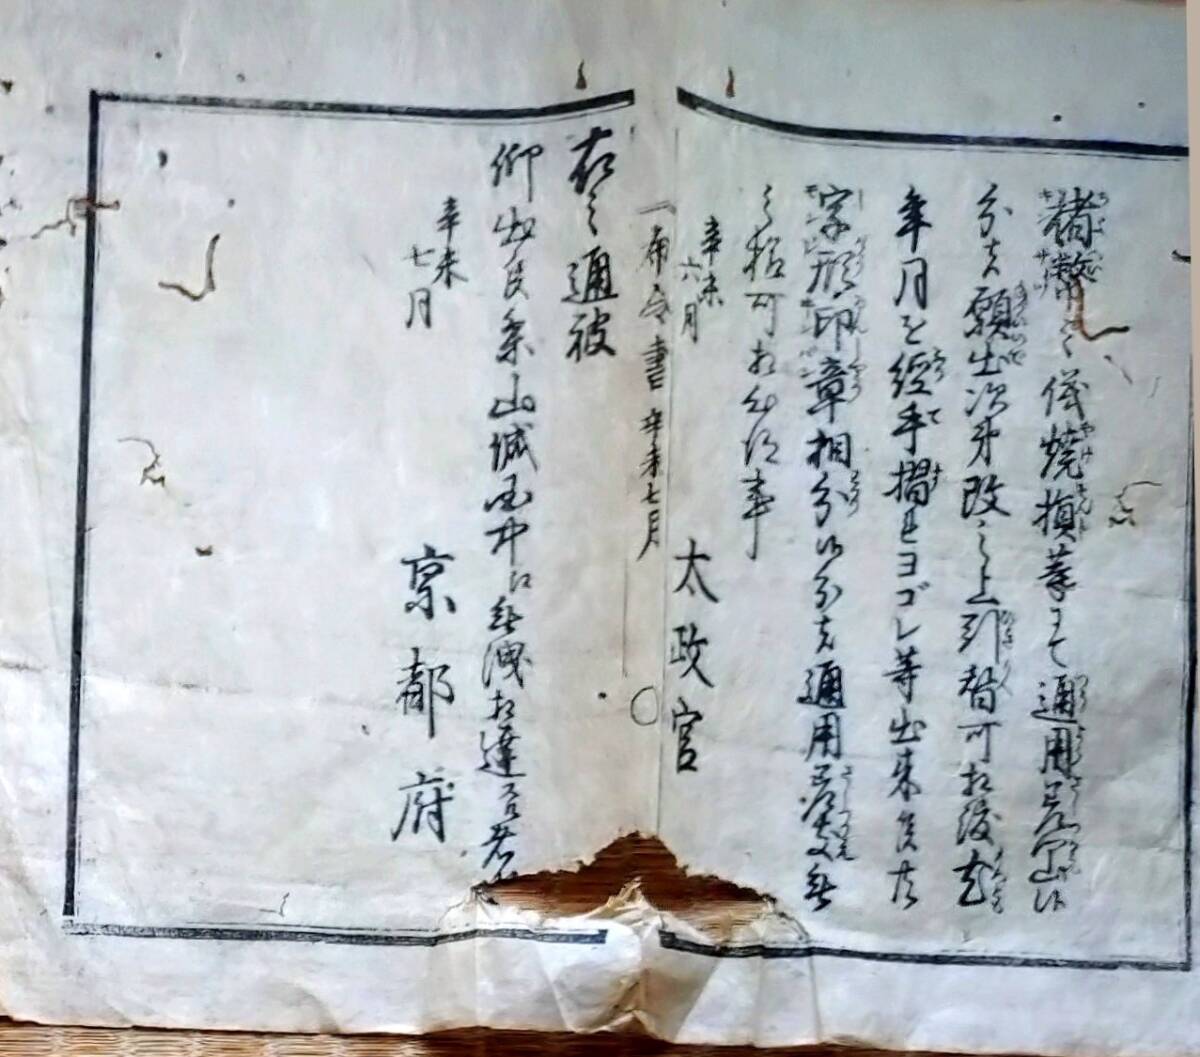 楮幣之儀焼損等ニて通用差閊候
分者願出次第改之上引替可相渡尤
年月を経手摺レヨゴレ等出来候共
字形印章相分候分者通用差支無
之格可相心得事
辛未六月
太政官
布令書 辛未七月
右之通被
仰出候条山城国中江無洩相達
辛未七月
京都府